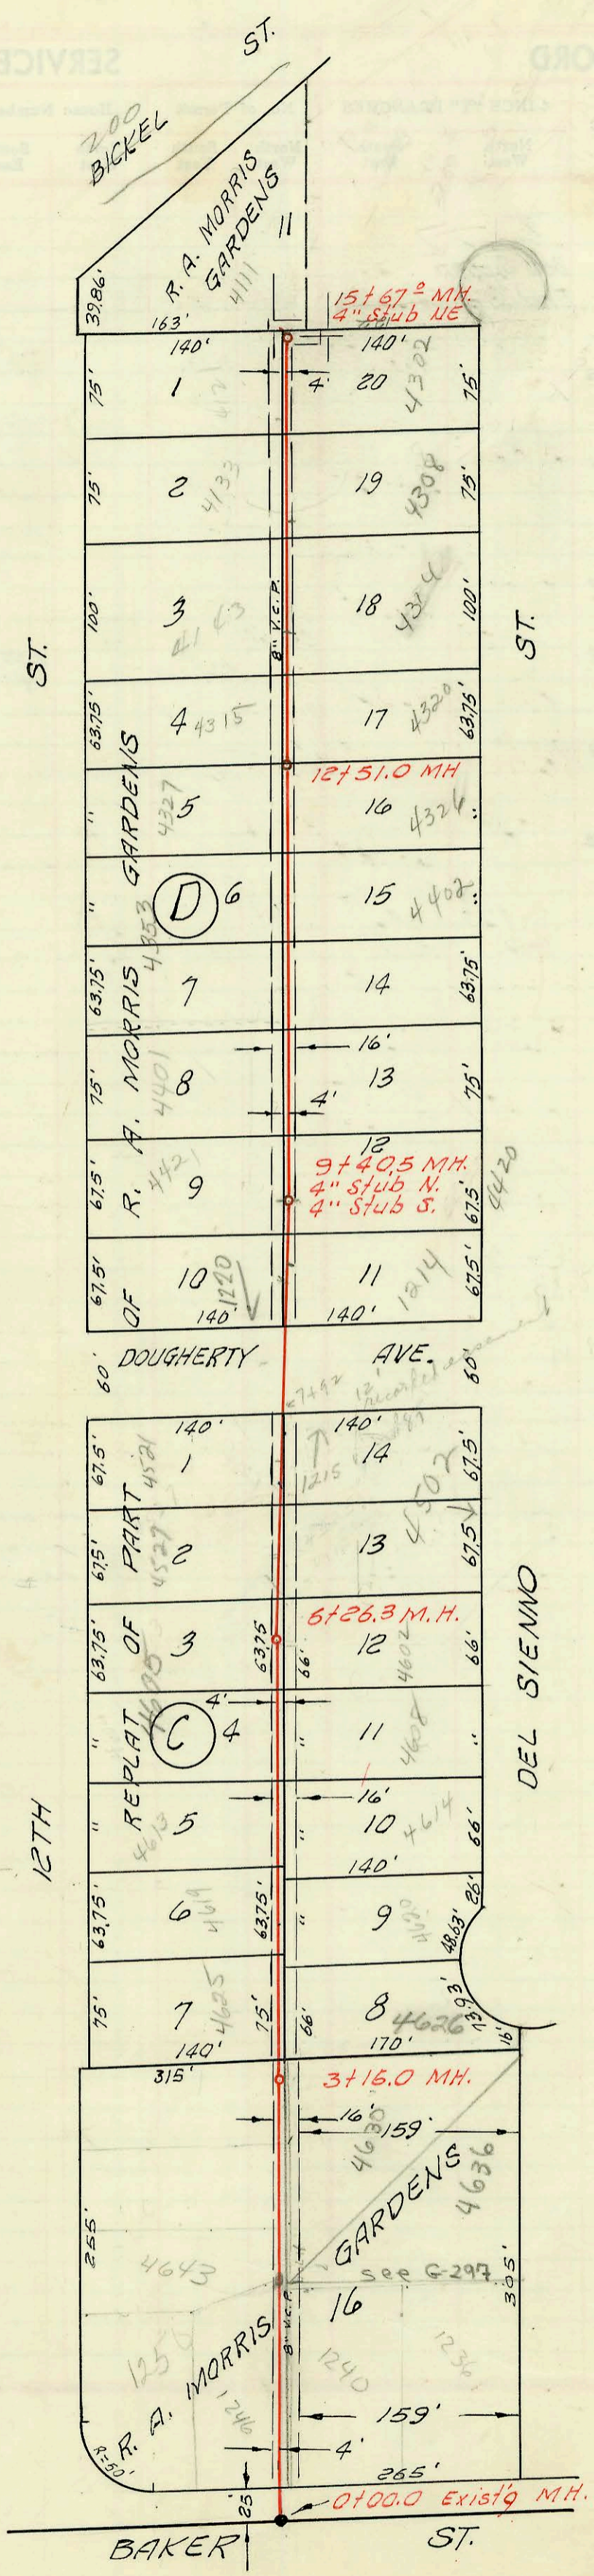 ST.
200
BICKEL
R. A. MORRIS
GARDENS
11
4111
39.86'
163'
15+67.0 MH.
4" Stub NE
140'
140'
75'
1
4121
4'
20
4302
75'
75'
2
4133
19
4308
75'
100'
3
4143
8" V.C.P.
18
4314
100'
ST.
ST.
63.75'
4
4315
17
4320
63.75'
12+51.0 MH
"
5
4327
16
4326
"
"
D
6
4353
15
4402
"
63.75'
7
14
63.75'
16'
75'
8
4401
4'
13
75'
12
9+40.5 MH.
4" Stub N.
4" Stub S.
67.5'
9
4421
67.5'
4420
67.5'
10
1220
11
1214
67.5'
140'
140'
60'
DOUGHERTY AVE.
60'
7+92
12'
140'
140'
67.5'
1
4521
1215
14
67.5'
4502
67.5'
2
4527
13
67.5'
6+26.3 M.H.
63.75'
3
4605
63.75
66'
12
4602
66'
4'
"
C
4
"
11
4608
"
16'
"
5
4613
"
10
4614
66'
140'
26'
63.75'
6
4619
63.75'
"
9
4620
48.63'
75'
7
4625
75'
66'
8
4626
73.93'
16'
140'
170'
REPLAT OF PART OF R. A. MORRIS GARDENS
12TH
DEL SIENNO
315'
3+15.0 MH.
16'
159'
4630
4636
255'
GARDENS
4643
see G-297
305'
16
8" V.C.P.
R. A. MORRIS
125
1246
1240
1236
159'
R=50'
4'
265'
25'
0+00.0 Exist'g MH.
BAKER ST.